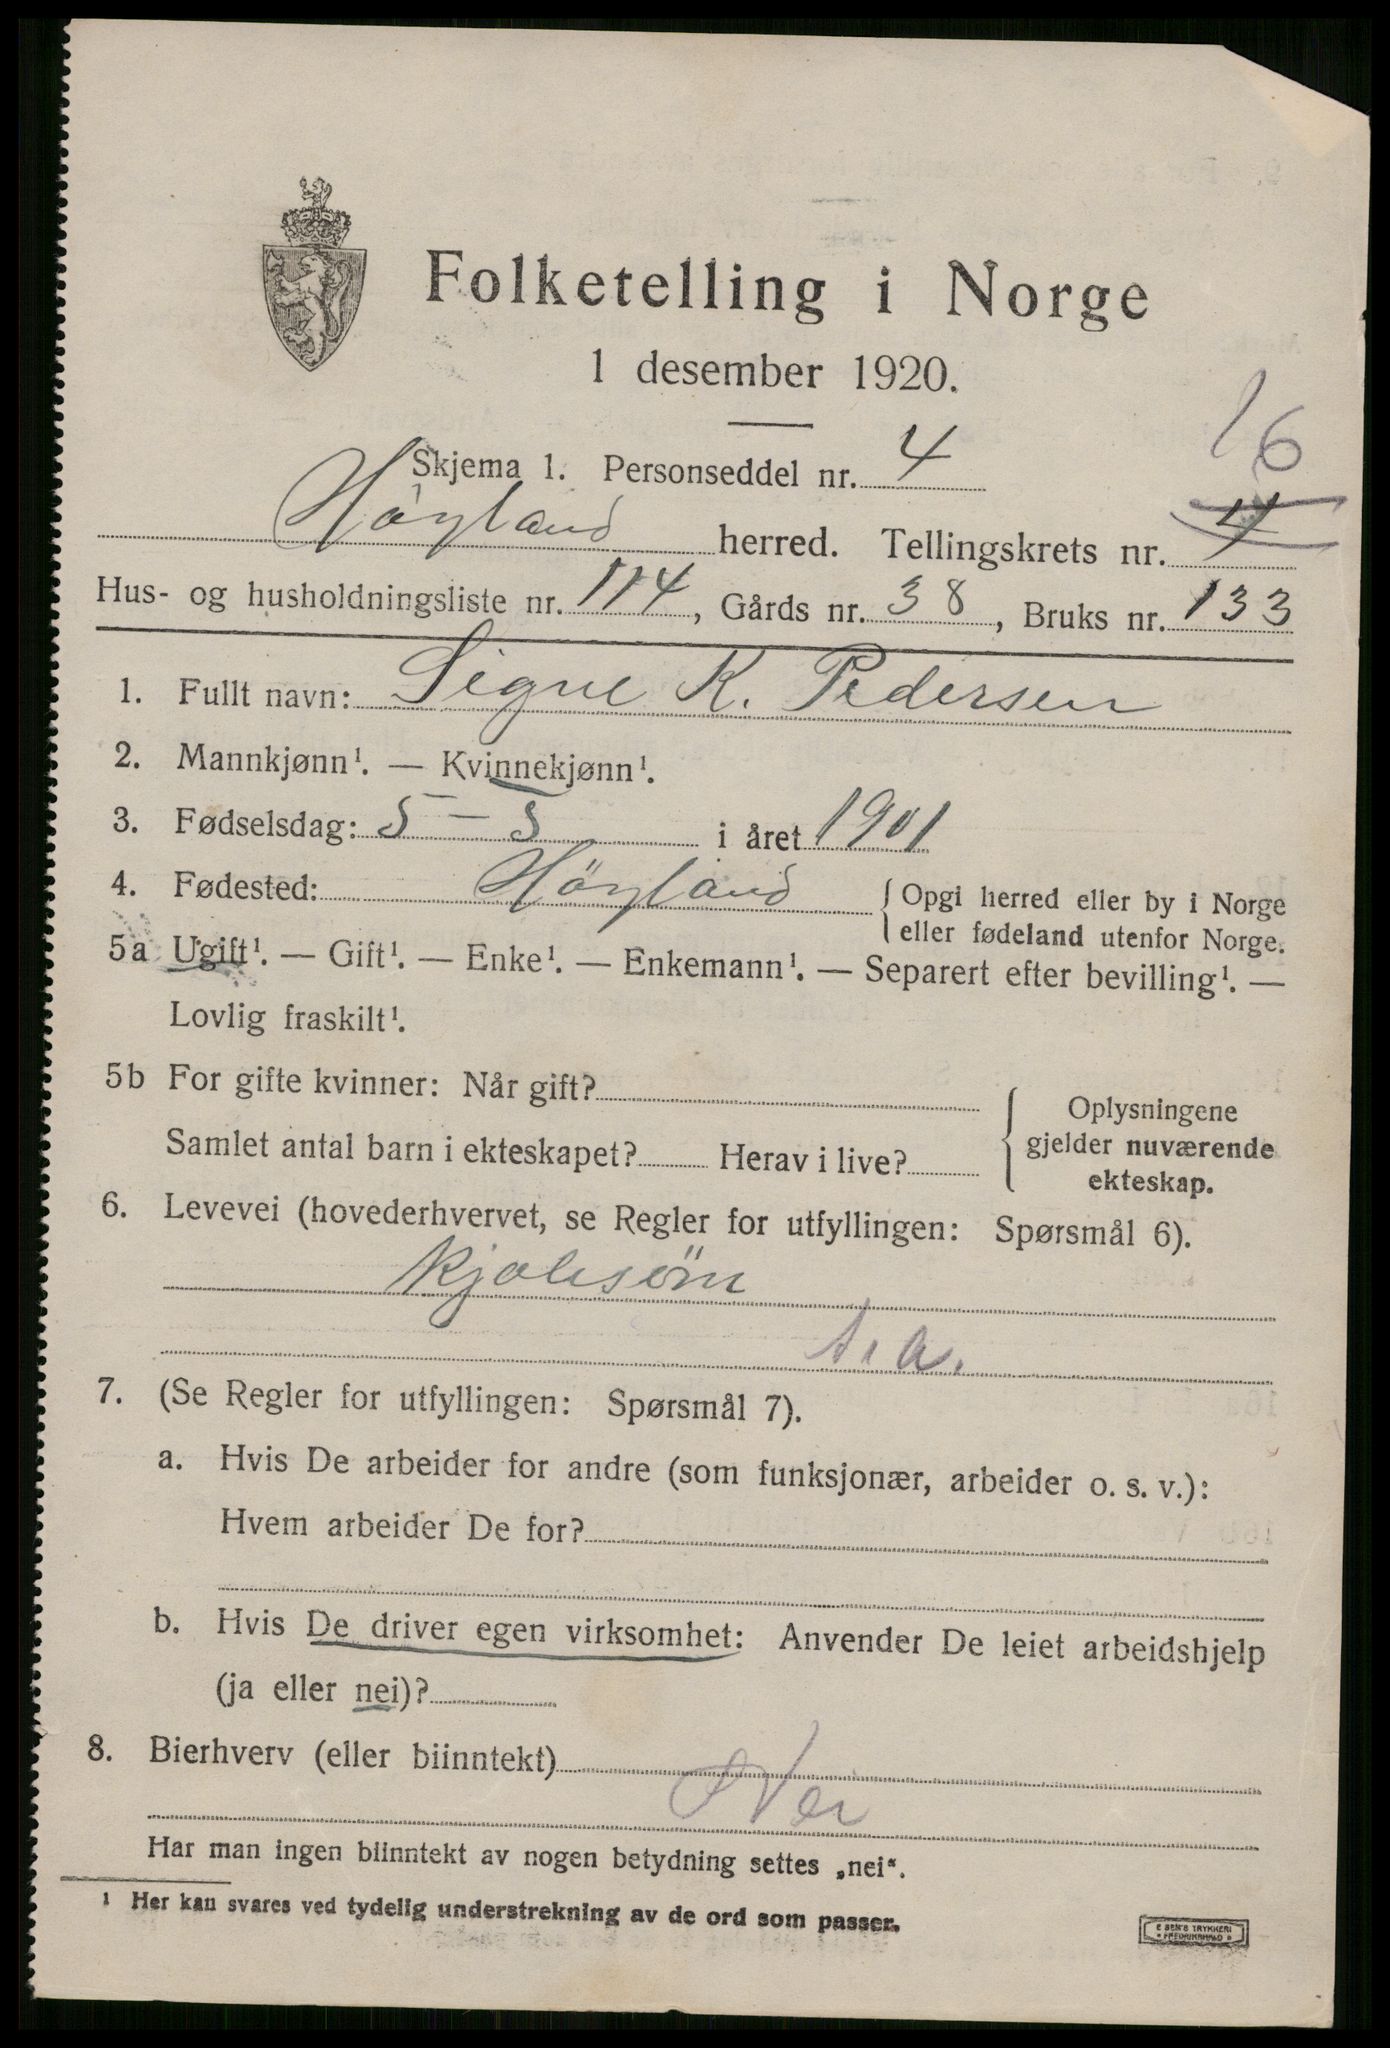 Folketelling i Norge
1 desember 1920.
Skjema 1. Personseddel nr. 4
16
Høyland herred. Tellingskrets nr. 4
Hus- og husholdningsliste nr. 114, Gårds nr. 38, Bruks nr. 133
1. Fullt navn: Signe K. Pedersen
2. Mannkjønn¹. — Kvinnekjønn¹.
3. Fødselsdag: 5 – 5 i året 1901
4. Fødested: Höyland { Opgi herred eller by i Norge
eller fødeland utenfor Norge.
5a Ugift¹. — Gift¹. — Enke¹. — Enkemann¹. — Separert efter bevilling¹. —
Lovlig fraskilt¹.
5b For gifte kvinner: Når gift?
Samlet antal barn i ekteskapet? Herav i live?
{ Oplysningene
gjelder nuværende
ekteskap.
6. Levevei (hovederhvervet, se Regler for utfyllingen: Spørsmål 6).
Kjolesöm
7. (Se Regler for utfyllingen: Spørsmål 7).
a. Hvis De arbeider for andre (som funksjonær, arbeider o. s. v.):
Hvem arbeider De for?
b. Hvis De driver egen virksomhet: Anvender De leiet arbeidshjelp
(ja eller nei)?
8. Bierhverv (eller biinntekt)
Nei
Har man ingen biinntekt av nogen betydning settes „nei“.
¹ Her kan svares ved tydelig understrekning av de ord som passer.
E SEM'S TRYKKERI
• FREDRIKSHALD •